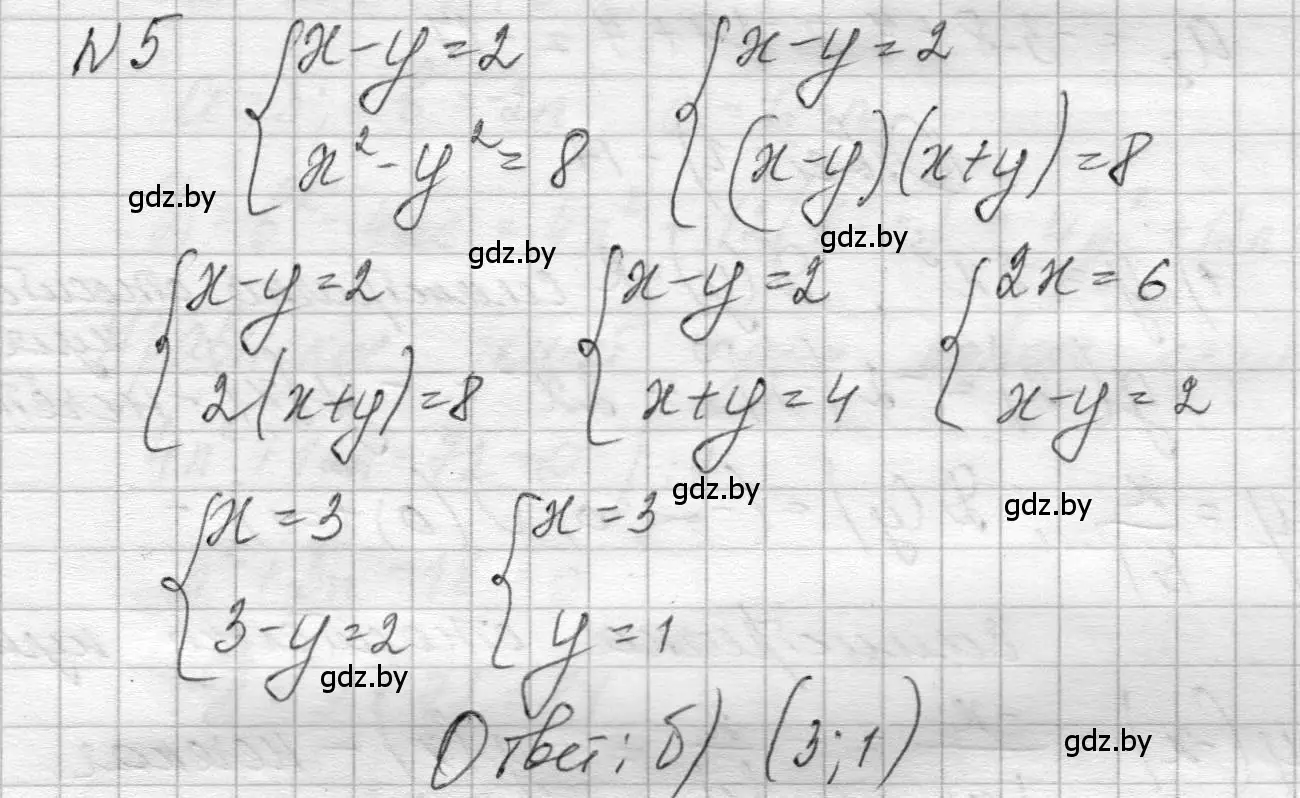 N 5 { x - y = 2 { x - y = 2
x² - y² = 8 (x - y)(x + y) = 8
gdz.by gdz.by gdz.by
{ x - y = 2 { x - y = 2 { 2x = 6
2(x + y) = 8 x + y = 4 x - y = 2
gdz.by gdz.by
{ x = 3 { x = 3
3 - y = 2 y = 1
gdz.by
Ответ: б) (3; 1) gdz.by